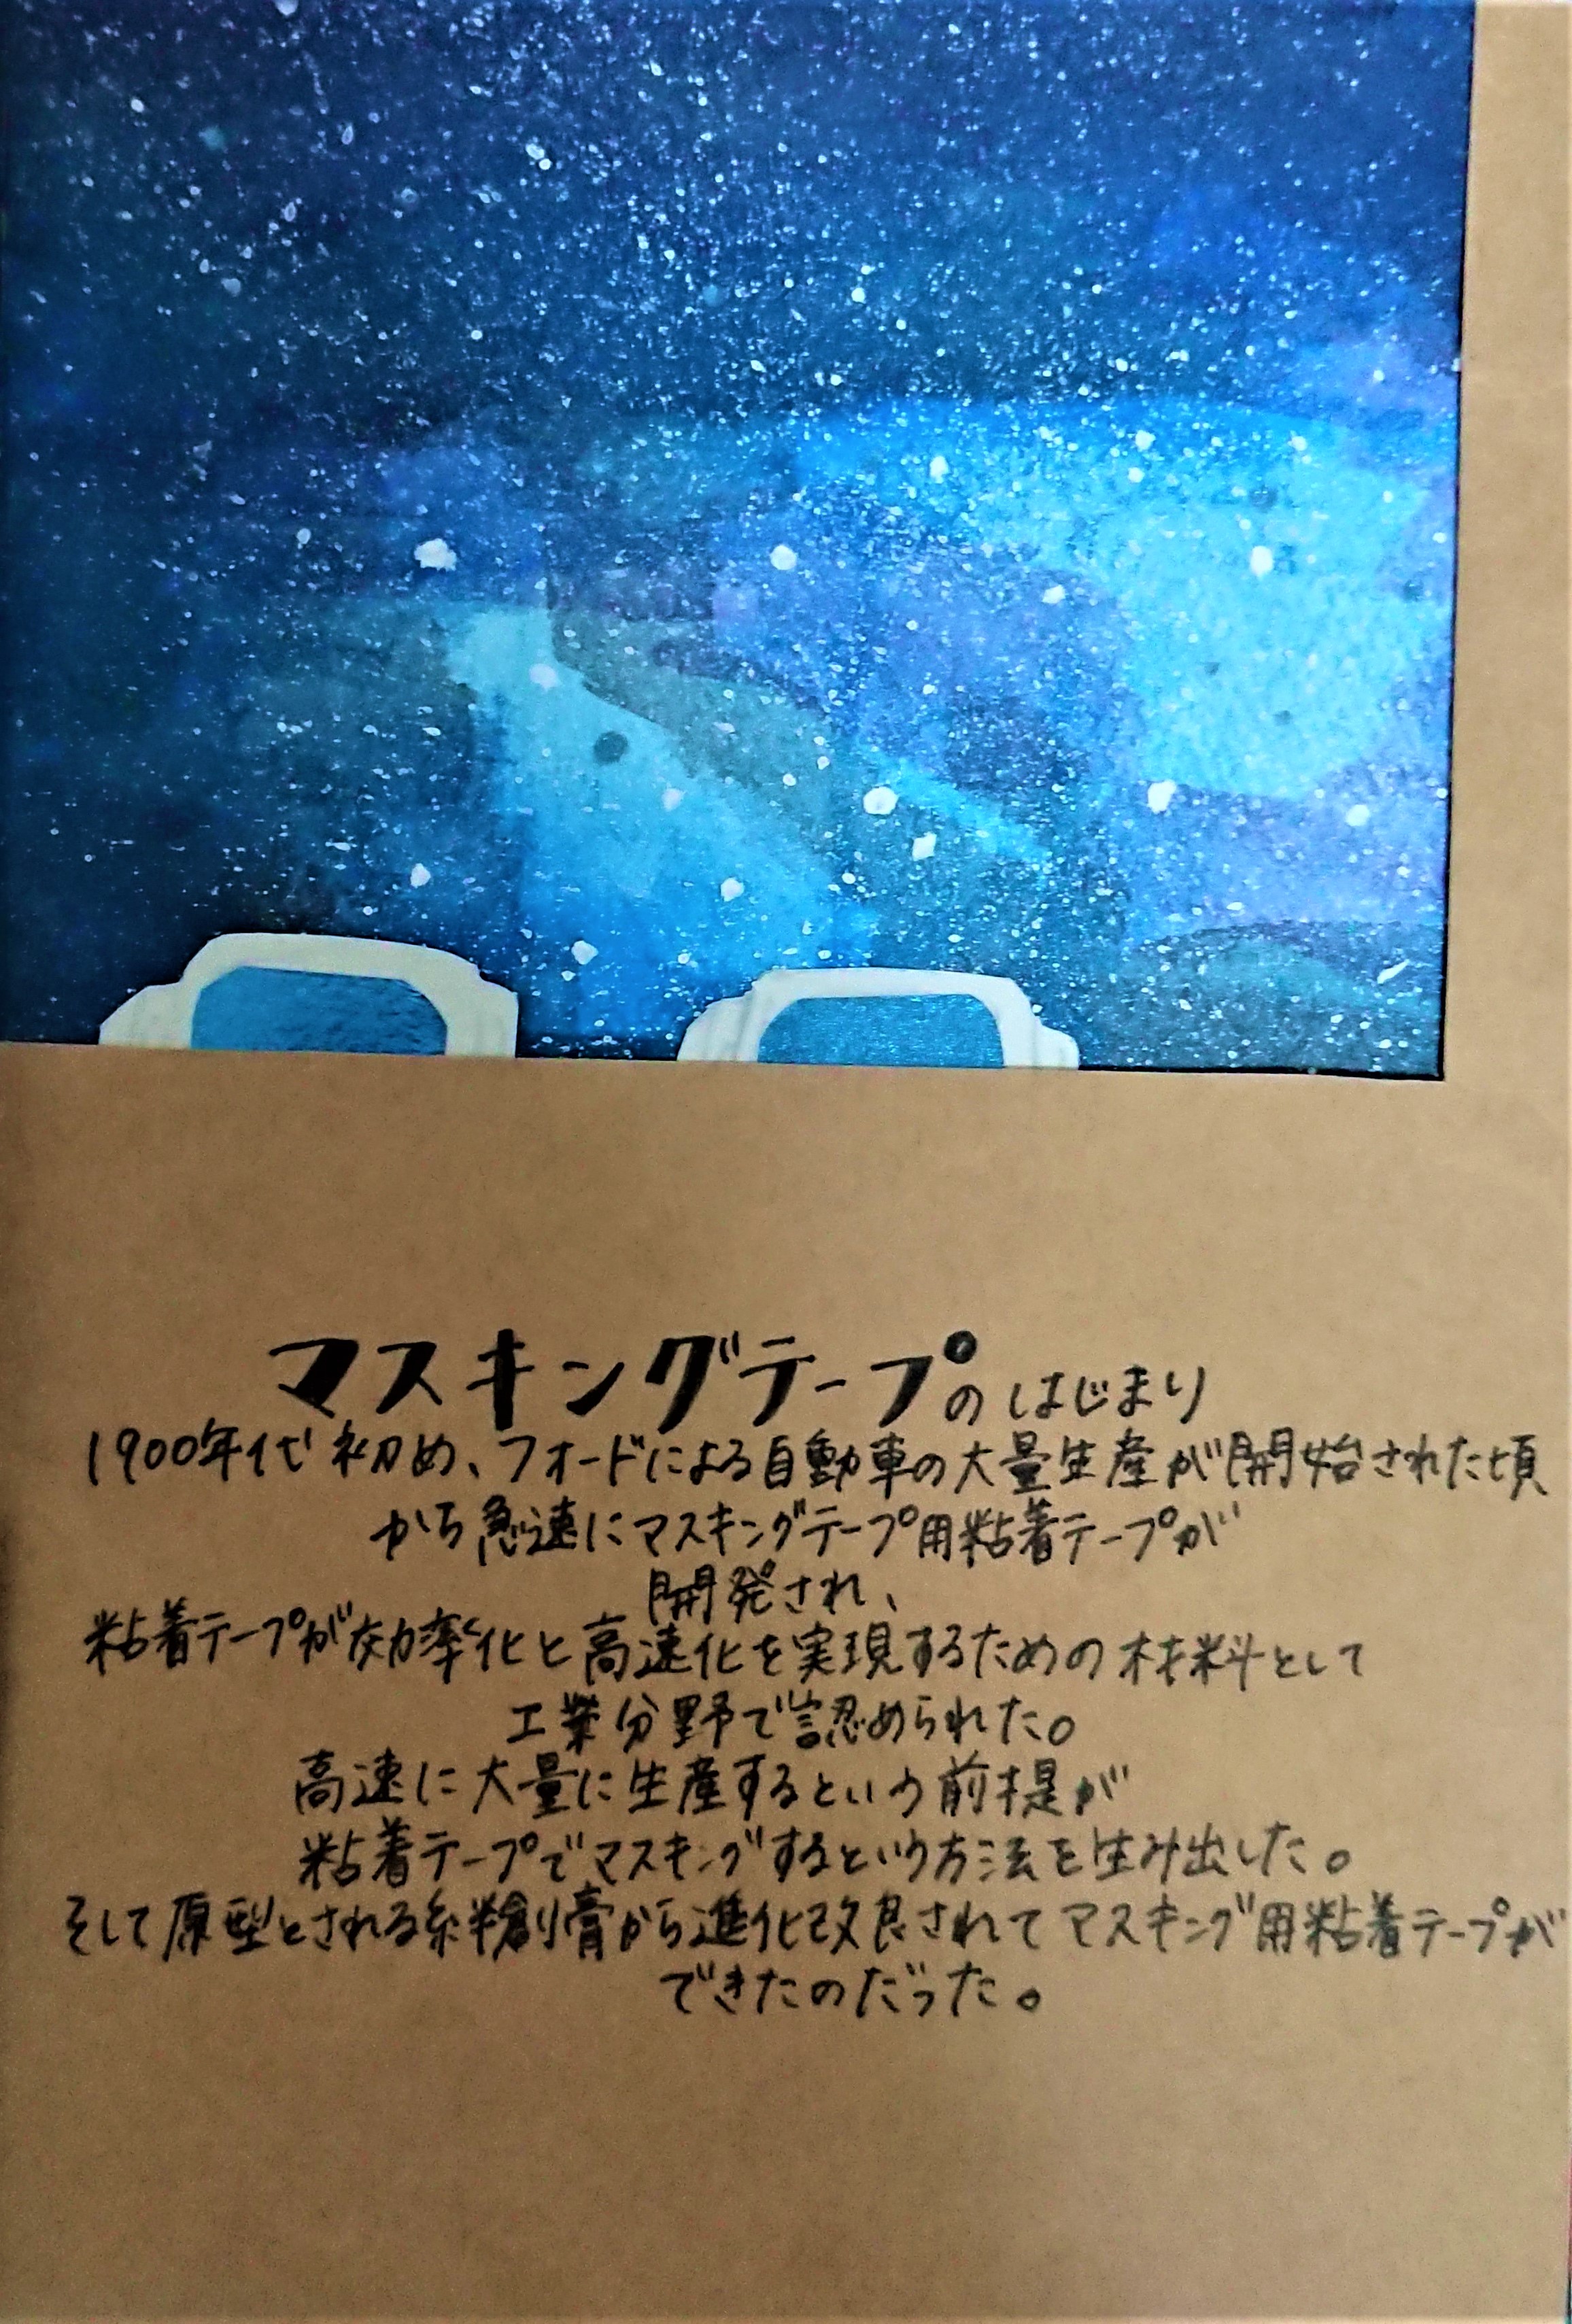 マスキングテープのはじまり
1900年代初め、フォードによる自動車の大量生産が開始された頃
から急速にマスキングテープ用粘着テープが
開発され、
粘着テープが効率化と高速化を実現するための材料として
工業分野で認められた。
高速に大量に生産するという前提が
粘着テープでマスキングするという方法を生み出した。
そして原型とされる絆創膏から進化改良されてマスキング用粘着テープが
できたのだった。